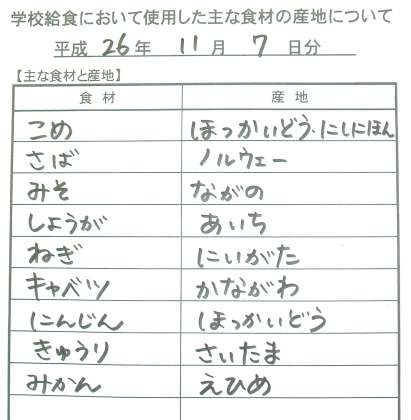 学校給食において使用した主な食材の産地について
平成 26 年 11 月 7 日分
【主な食材と産地】
食 材 産 地
こめ ほっかいどう・にしにほん
さば ノルウェー
みそ ながの
しょうが あいち
ねぎ にいがた
キャベツ かながわ
にんじん ほっかいどう
きゅうり さいたま
みかん えひめ